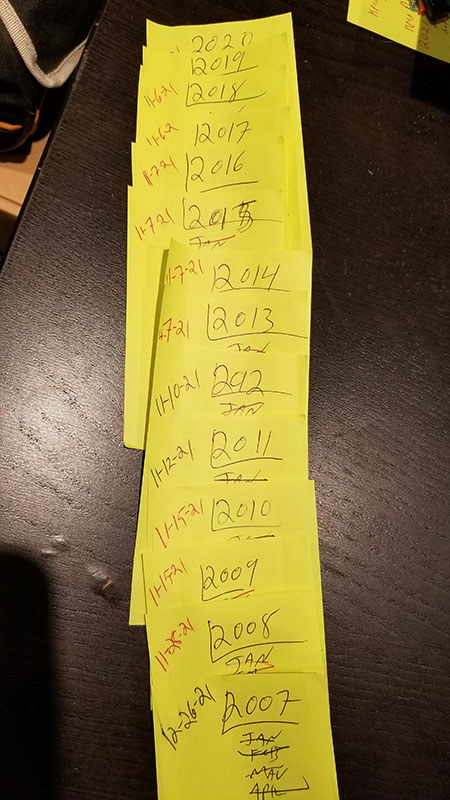 2020
2019
11-6-21 2018
11-6-2 2017
11-7-21 2016
11-7-21 2015
JAN
11-7-21 2014
-7-21 2013
JAN
11-10-21 2012
JAN
11-12-21 2011
JAN
11-15-21 2010
JAN
11-15-21 2009
11-28-21 2008
JAN
12-26-21 2007
JAN
FEB
MAR
APRIL